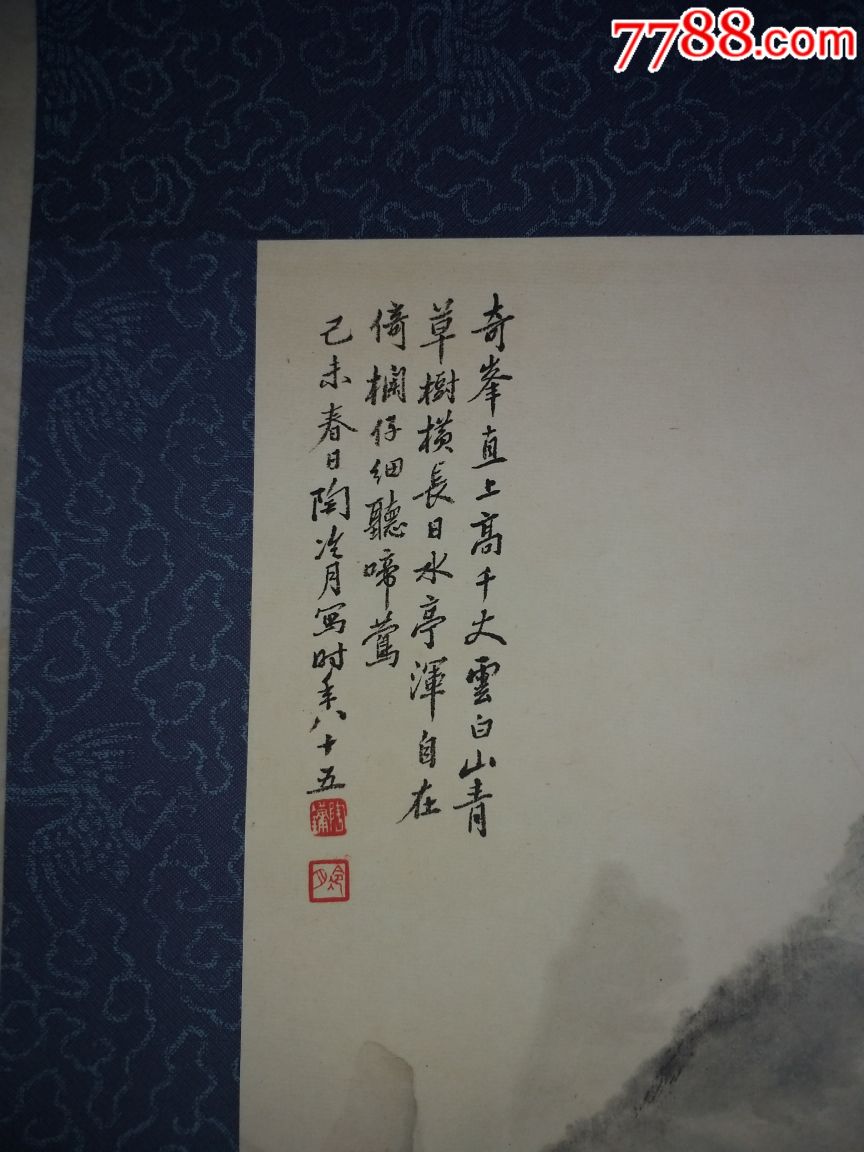 7788.com
奇峯直上高千丈雲白山青
草樹橫長日水亭渾自在
倚欄仔细聽啼鶯
己未春日陶冷月写时年八十五
陶鏞
冷月